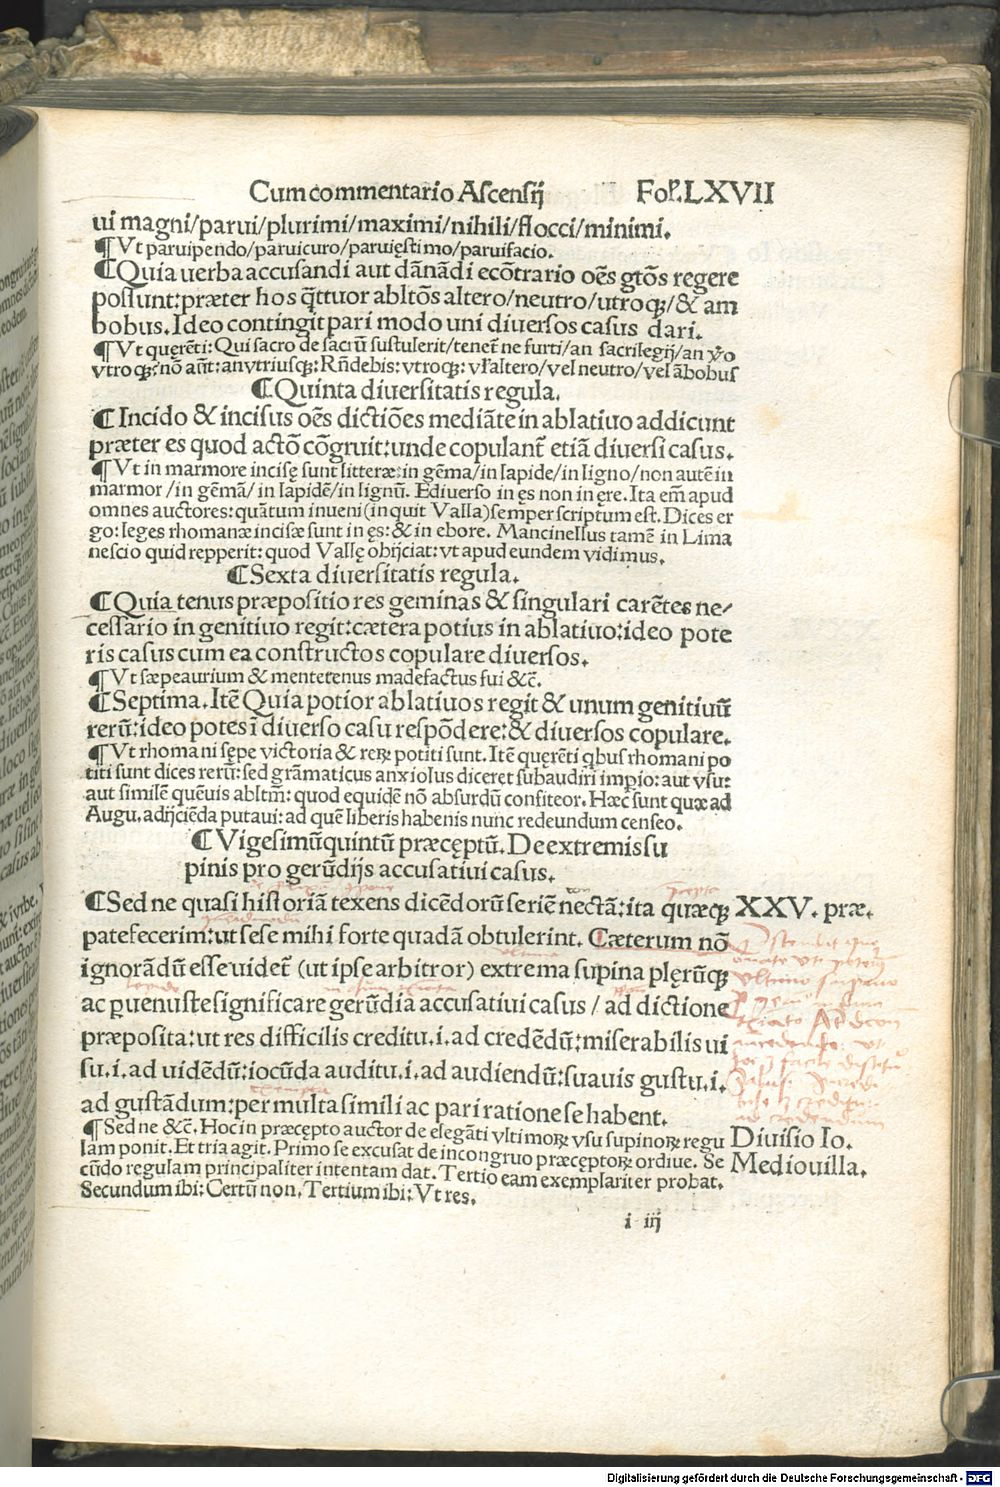 Cum commentario Ascensij Fol. LXVII
ui magni/parui/plurimi/maximi/nihili/flocci/minimi.
¶ Vt paruipendo/paruicuro/paruięstimo/paruifacio.
¶ Quia uerba accusandi aut dānādi ecōtrario oēs gtōs regere
possunt: præter hos q̄ttuor abltōs altero/neutro/utroqꝫ/& am
bobus. Ideo contingit pari modo uni diuersos casus dari.
¶ Vt querēti: Qui sacro de sacrū sustulerit/tenet̄ ne furti/an sacrilegij/an
vtroqꝫ? nō aūt: an vtriusqꝫ: Rn̄debis: vtroqꝫ: vl̄ altero/vel neutro/vel ābobus
¶ Quinta diuersitatis regula.
¶ Incido & incisus oēs dictiōes mediāte in ablatiuo addicunt
præter es quod actō cōgruit: unde copulant̄ etiā diuersi casus.
¶ Vt in marmore incisę sunt litteræ: in gēma/in lapide/in ligno/non autē in
marmor/in gēmā/in lapidē/in lignū. Ediuerso in ęs non in ęre. Ita em̄ apud
omnes auctores: quātum inueni (inquit Valla) semper scriptum est. Dices er
go: leges rhomanæ incisæ sunt in ęs: & in ebore. Mancinellus tamē in Lima
nescio quid repperit: quod Vallę obijciat: vt apud eundem vidimus.
¶ Sexta diuersitatis regula.
¶ Quia tenus præpositio res geminas & singulari carētes ne/
cessario in genitiuo regit: cætera potius in ablatiuo: ideo pote
ris casus cum ea constructos copulare diuersos.
¶ Vt sæpe aurium & mente tenus madefactus fui &c̄.
¶ Septima. Itē Quia potior ablatiuos regit & unum genitiuū
rerū: ideo potes ī diuerso casu respōdere: & diuersos copulare.
¶ Vt rhomani sępe victoria & rerꝝ potiti sunt. Itē quęrēti qbus rhomani po
titi sunt dices rerū: sed grāmaticus anxiolus diceret subaudiri imp̱io: aut vsu:
aut similē quēuis abltm̄: quod equidē nō absurdū confiteor. Hæc sunt quæ ad
Augu. adijciēda putaui: ad quē liberis habenis nunc redeundum censeo.
¶ Vigesimūquintū præcęptū. De extremis su
pinis pro gerūdijs accusatiui casus.
¶ Sed ne quasi historiā texens dicēdorū seriē nectā: ita quæqꝫ XXV. præ.
patefecerim: ut sese mihi forte quadā obtulerint. Cæterum nō
ignorādū esse uidet̄ (ut ipse arbitror) extrema supina plęrūqꝫ
ac p̱uenuste significare gerūdia accusatiui casus / ad dictione
præposita: ut res difficilis creditu .i. ad credēdū: miserabilis ui
su .i. ad uidēdū: iocūda auditu .i. ad audiendū: suauis gustu .i.
ad gustādum: per multa simili ac pari ratione se habent.
¶ Sed ne &c̄. Hoc in præcępto auctor de elegāti vltimorꝝ vsu supinorꝝ regu Diuisio Io.
lam ponit. Et tria agit. Primo se excusat de incongruo præcęptorꝝ ordine. Se Mediouilla.
cūdo regulam principaliter intentam dat. Tertio eam exemplariter probat.
Secundum ibi: Certū non. Tertium ibi: Vt res.
i iij
Digitalisierung gefördert durch die Deutsche Forschungsgemeinschaft - DFG